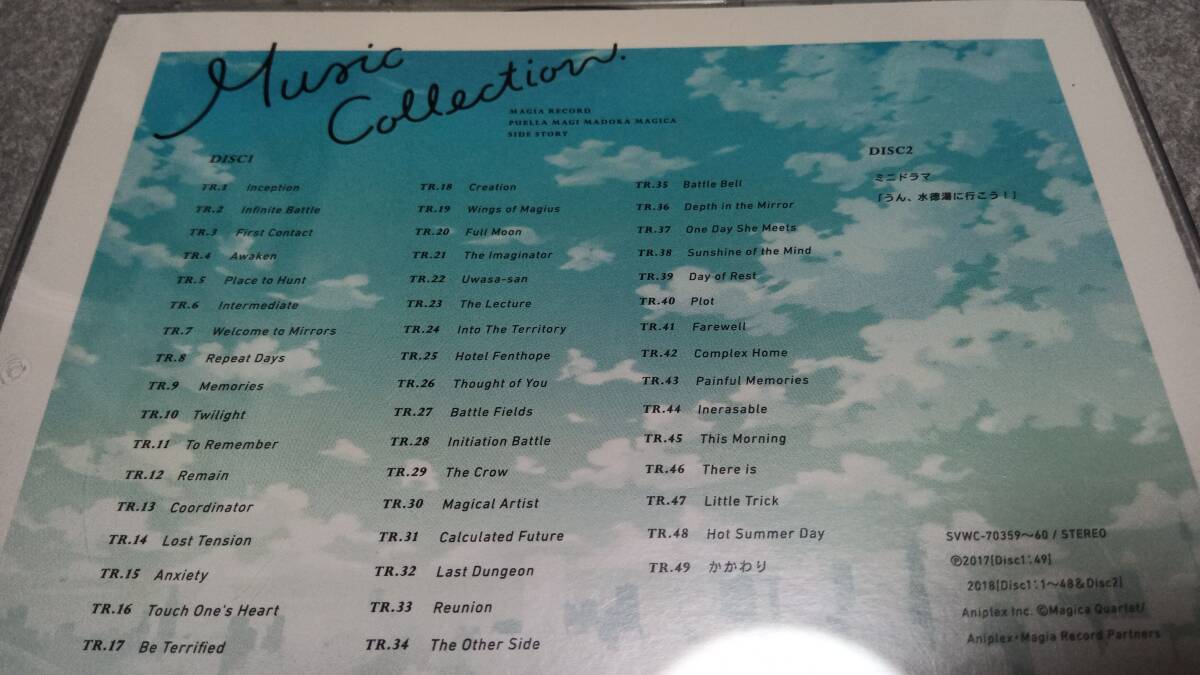 Music
Collection.
MAGIA RECORD
PUELLA MAGI MADOKA MAGICA
SIDE STORY
DISC1
TR.1 Inception
TR.2 Infinite Battle
TR.3 First Contact
TR.4 Awaken
TR.5 Place to Hunt
TR.6 Intermediate
TR.7 Welcome to Mirrors
TR.8 Repeat Days
TR.9 Memories
TR.10 Twilight
TR.11 To Remember
TR.12 Remain
TR.13 Coordinator
TR.14 Lost Tension
TR.15 Anxiety
TR.16 Touch One's Heart
TR.17 Be Terrified
TR.18 Creation
TR.19 Wings of Magius
TR.20 Full Moon
TR.21 The Imaginator
TR.22 Uwasa-san
TR.23 The Lecture
TR.24 Into The Territory
TR.25 Hotel Fenthope
TR.26 Thought of You
TR.27 Battle Fields
TR.28 Initiation Battle
TR.29 The Crow
TR.30 Magical Artist
TR.31 Calculated Future
TR.32 Last Dungeon
TR.33 Reunion
TR.34 The Other Side
TR.35 Battle Bell
TR.36 Depth in the Mirror
TR.37 One Day She Meets
TR.38 Sunshine of the Mind
TR.39 Day of Rest
TR.40 Plot
TR.41 Farewell
TR.42 Complex Home
TR.43 Painful Memories
TR.44 Inerasable
TR.45 This Morning
TR.46 There is
TR.47 Little Trick
TR.48 Hot Summer Day
TR.49 かかわり
DISC2
ミニドラマ
「うん、水徳湯に行こう！」
SVWC-70359～60 / STEREO
℗2017[Disc1:49]
2018[Disc1:1～48&Disc2]
Aniplex Inc. ©Magica Quartet/
Aniplex・Magia Record Partners